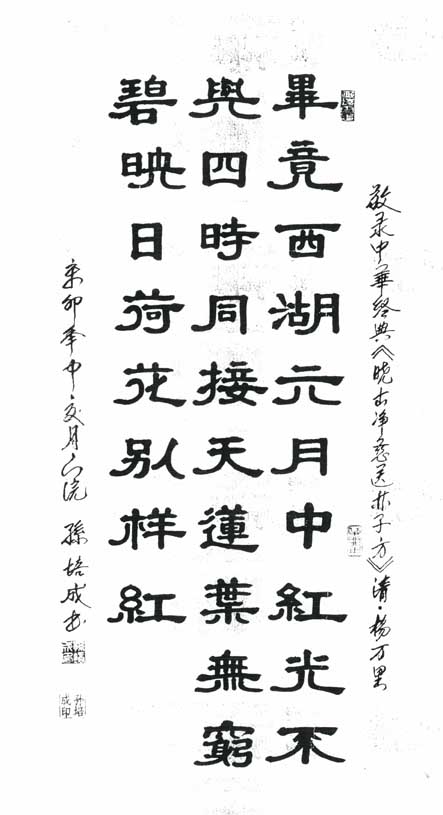 敬录中華经典《晓出净慈送林子方》清·楊万里
畢竟西湖六月中紅光不
與四時同接天蓮葉無窮
碧映日荷花別样紅
辛卯年中 月 浣 孫培成书